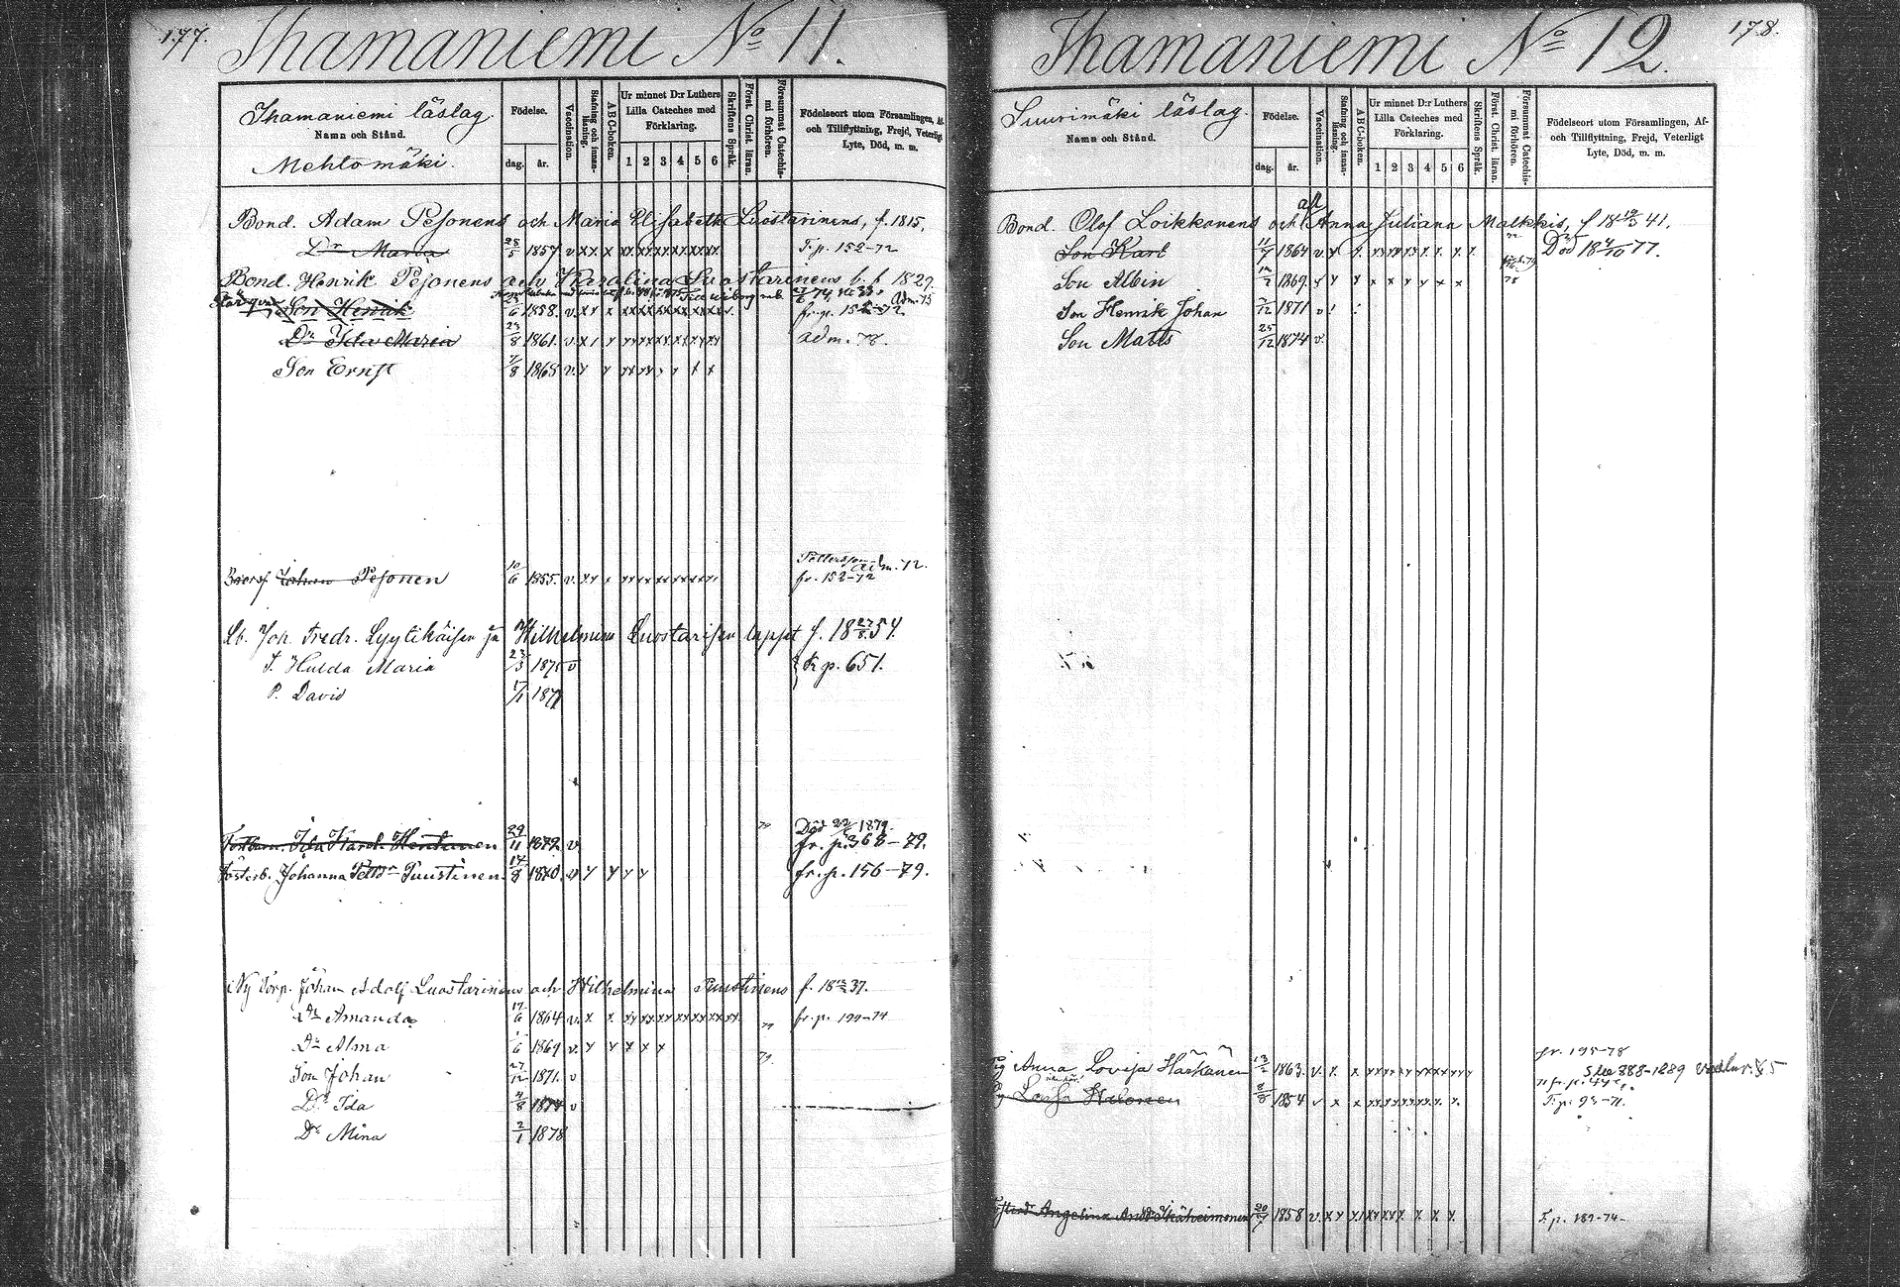 177.
Ihamaniemi No 11.
Ihamaniemi läslag.
Namn och Stånd.
Mehtomäki.
Födelse.
dag. år.
Vaccination.
Stafning och innan-läsning.
ABC-boken.
Ur minnet D:r Luthers
Lilla Cateches med
Förklaring.
1 2 3 4 5 6
Skriftens Språk.
Först. Christ. läran.
Försummat Catechis-mi förhören.
Födelseort utom Församlingen, Af-
och Tillflyttning, Frejd, Veterligt
Lyte, Död, m. m.
Bond. Adam Pesonens och Maria Elisabeth Luostarinens, f. 1815.
Dr Maria 28/5 1857. v x x x x x x x x x x x x x x T. p. 152-72
Bond. Henrik Pesonens och Karolina Luostarinens b. f 1829.
Son Henrik /6 1858. v. x x x x x x x x x x x x x v. fr. p. 152-72 Adm. 75
Dr Ida Maria 23/8 1861. v. x x x x x x x x x x x x adm. 78.
Son Ernst 7/8 1865 v. x x x x x x x x x
Johan Pesonen 10/6 1855. v. x x x x x x x x x x x x adm. 72.
fr. 152-72
Lb. Joh. Fredr. Lyytikäisen ja Wilhelmina Luostarisen lapset f. 18 27/8 54.
T. Hulda Maria 23/3 1875 v R p. 651.
P. David 17/1 1877
Död 22/ 1879.
Fostbarn. Ida Karol. Hentunen 29/11 1872 v. fr. p. 368-79.
Fosterb. Johanna Pettr Puustinen 14/8 1870. v x x x x fr. p. 156-79.
Ny Torp. Johan Adolf Luostarinens och Wilhelmina Puustinens f. 18 37.
Dr Amanda 17/6 1864 v. x x x x x x x x x x x x x x x fr. p. 199-74
Dr Alma /6 1869 v. x x x x x
Son Johan 27/12 1871. v
Dr Ida 4/8 1874 v
Dr Mina 2/1 1878
178.
Ihamaniemi No 12.
Suurimäki läslag.
Namn och Stånd.
Födelse.
dag. år.
Vaccination.
Stafning och innan-läsning.
ABC-boken.
Ur minnet D:r Luthers
Lilla Cateches med
Förklaring.
1 2 3 4 5 6
Skriftens Språk.
Först. Christ. läran.
Försummat Catechis-mi förhören.
Födelseort utom Församlingen, Af-
och Tillflyttning, Frejd, Veterligt
Lyte, Död, m. m.
Bond. Olof Loikkanens och afl Anna Juliana Malkkis, f 18 41.
Son Karl 11/9 1864 v. x x. x x x x x x. x. x. x Död 18 4/10 77.
Son Albin /2 1869. v x x x x x x x x
Son Henrik Johan /12 1871 v
Son Matts 25/12 1874 v.
fr. 195-78
Pig Anna Lovisa Häkkänen 13/2 1863. v. x. x x x x x x x x x x x x 888-1889
Halonen 1854 v x x x x x x x x x x. x. T. p. 93-71.
Angelina Andr Ikäheimonen 20/7 1858 v. x x x x x x x x x x T. p. 189-74